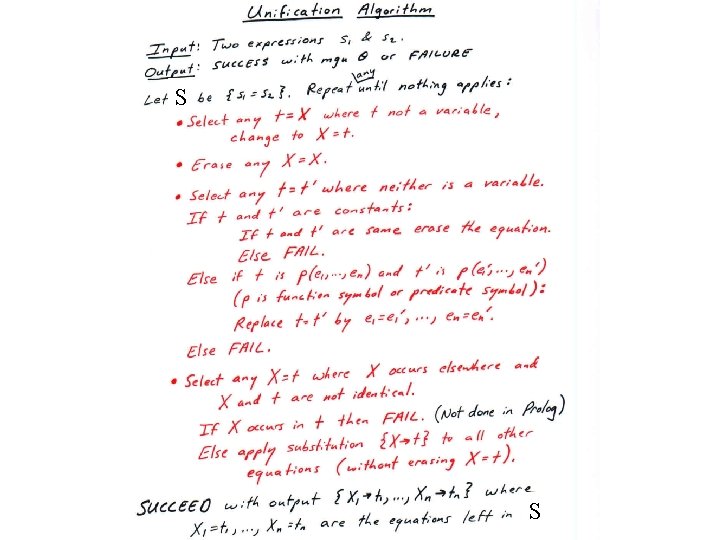 Unification Algorithm
Input: Two expressions s1 & s2.
Output: SUCCESS with mgu θ or FAILURE
any
Let S be {s1=s2}. Repeat until nothing applies:
• Select any t=X where t not a variable,
change to X=t.
• Erase any X=X.
• Select any t=t' where neither is a variable.
If t and t' are constants:
If t and t' are same erase the equation.
Else FAIL.
Else if t is p(e1,...,en) and t' is p(e1',...,en')
(p is function symbol or predicate symbol):
Replace t=t' by e1=e1', ..., en=en'.
Else FAIL.
• Select any X=t where X occurs elsewhere and
X and t are not identical.
If X occurs in t then FAIL. (Not done in Prolog)
Else apply substitution {X→t} to all other
equations (without erasing X=t).
SUCCEED with output {X1→t1,...,Xn→tn} where
X1=t1,...,Xn=tn are the equations left in S